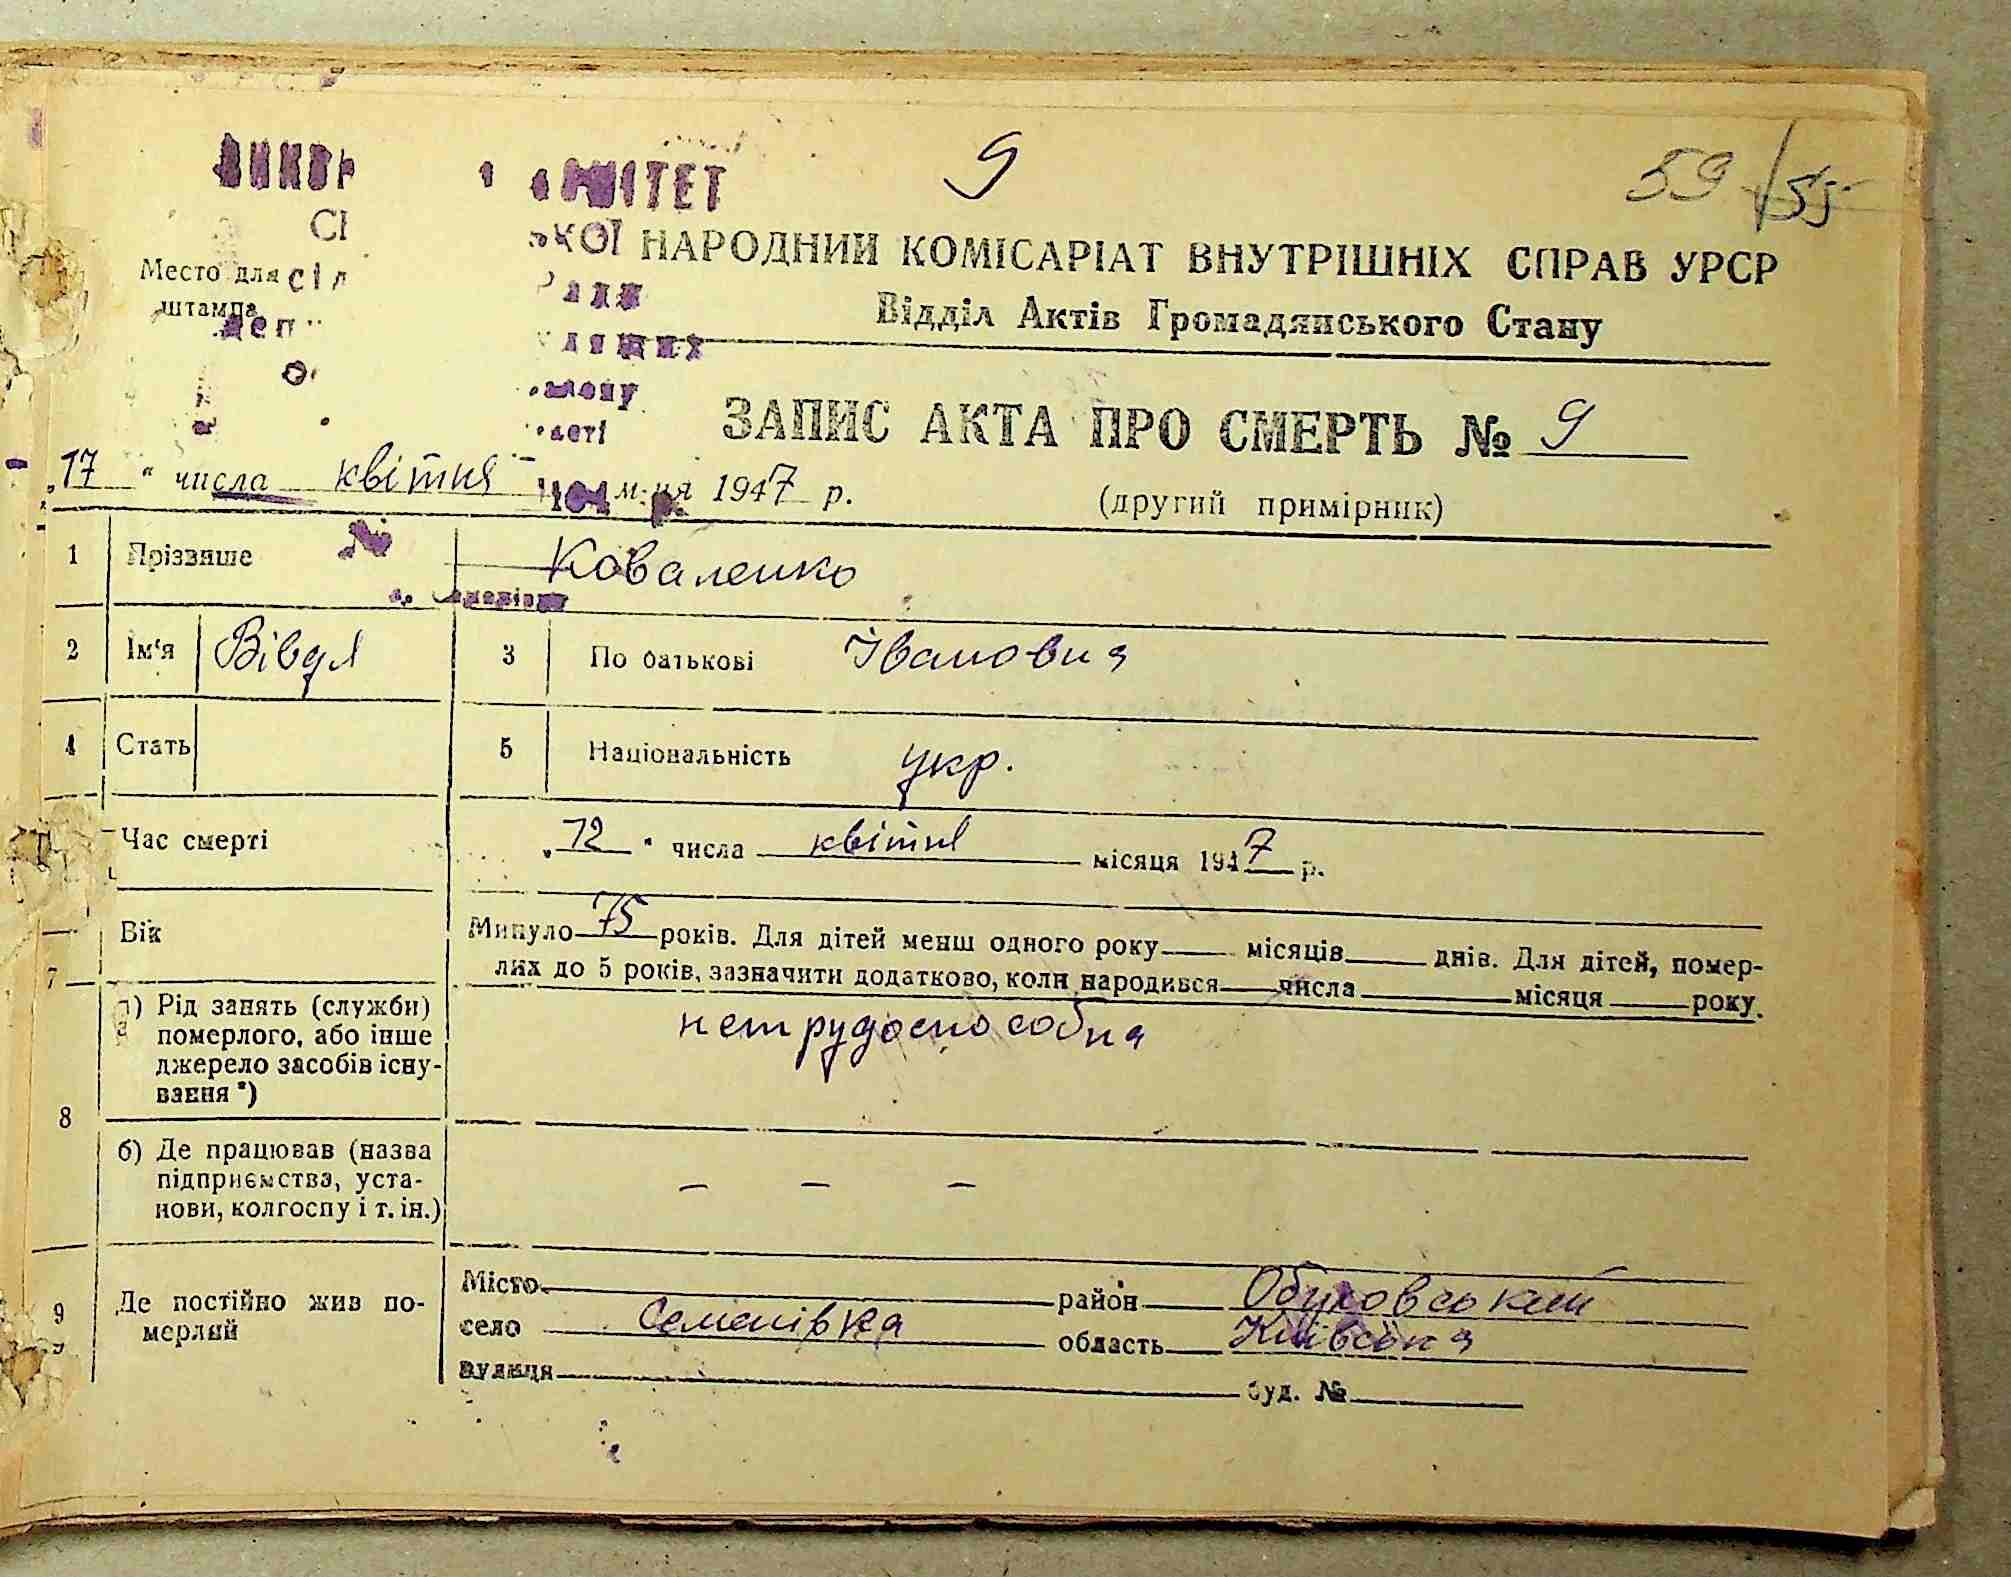 9
59/55
КОМІТЕТ
НАРОДНИЙ КОМІСАРІАТ ВНУТРІШНІХ СПРАВ УРСР
Место для штампа
Відділ Актів Громадянського Стану
ЗАПИС АКТА ПРО СМЕРТЬ № 9
„17" числа квітня м-ця 1947 р.
(другий примірник)
1 Прізвище Коваленко
2 Ім'я Вівдя 3 По батькові Івановна
4 Стать 5 Національність укр.
Час смерті „12" числа квітня місяця 1947 р.
7 Вік Минуло 75 років. Для дітей менш одного року місяців днів. Для дітей, помер-
лих до 5 років, зазначити додатково, коли народився числа місяця року.
8 а) Рід занять (служби) нетрудоспособна
померлого, або інше
джерело засобів існу-
вання *)
б) Де працював (назва
підприємства, уста- – – –
нови, колгоспу і т. ін.)
9 Де постійно жив по-
мерлий
Місто район Обуховський
село Семенівка область Київська
вулиця буд. №